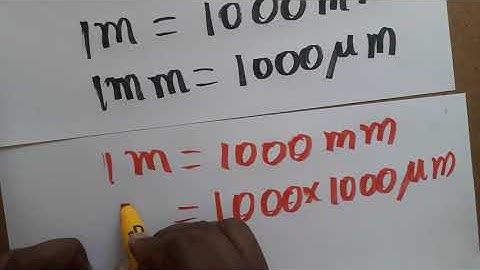 1m = 1000 mm
1mm = 1000 μm
1m = 1000 mm
= 1000×1000 μm